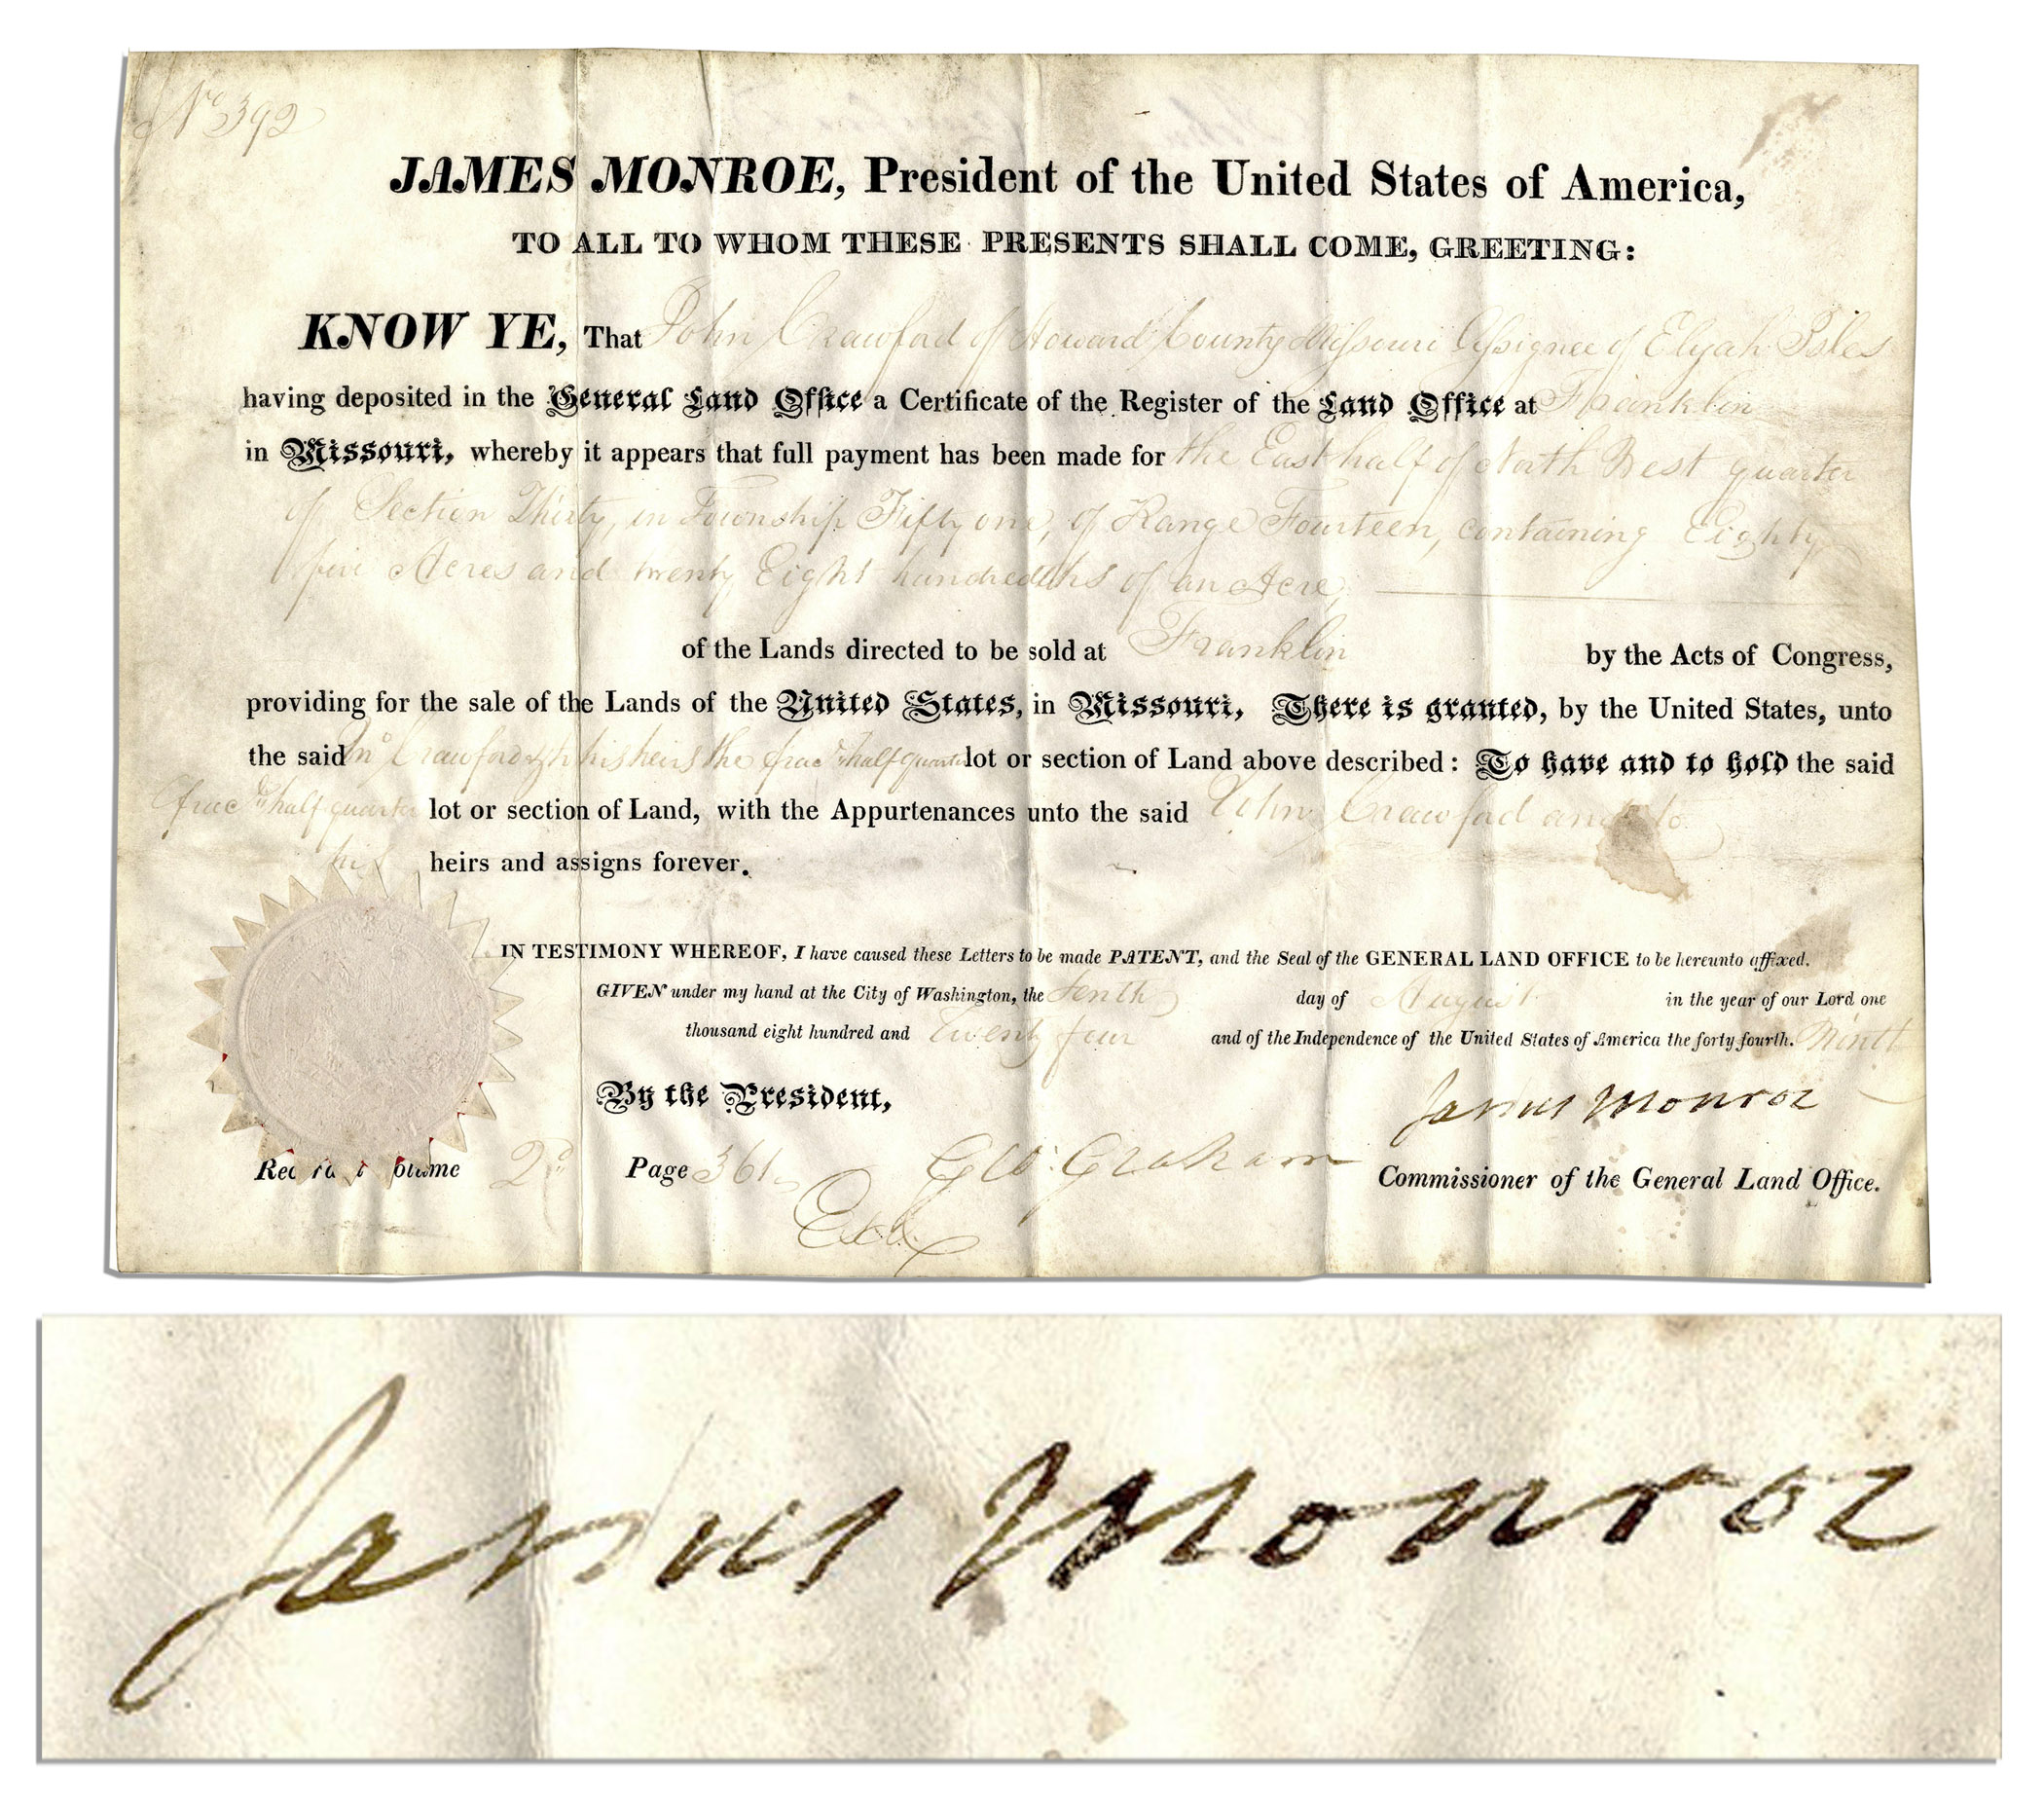 No 392
JAMES MONROE, President of the United States of America,
TO ALL TO WHOM THESE PRESENTS SHALL COME, GREETING:
KNOW YE, That John Crawford of Howard County Missouri Assignee of Elijah Isles
having deposited in the General Land Office a Certificate of the Register of the Land Office at Franklin
in Missouri, whereby it appears that full payment has been made for the East half of North West quarter
of Section Thirty, in Township Fifty one, of Range Fourteen, containing Eighty
five Acres and twenty Eight hundredths of an Acre,
of the Lands directed to be sold at Franklin by the Acts of Congress,
providing for the sale of the Lands of the United States, in Missouri, There is granted, by the United States, unto
the said Jno Crawford & his heirs the frac l half quarter lot or section of Land above described: To have and to hold the said
frac l half quarter lot or section of Land, with the Appurtenances unto the said John Crawford and to
his heirs and assigns forever.
IN TESTIMONY WHEREOF, I have caused these Letters to be made PATENT, and the Seal of the GENERAL LAND OFFICE to be hereunto affixed.
GIVEN under my hand at the City of Washington, the tenth day of August in the year of our Lord one
thousand eight hundred and twenty four and of the Independence of the United States of America the forty fourth. Ninth
By the President, James Monroe
Geo: Graham
Recorded Volume 2d Page 361 Commissioner of the General Land Office.
James Monroe